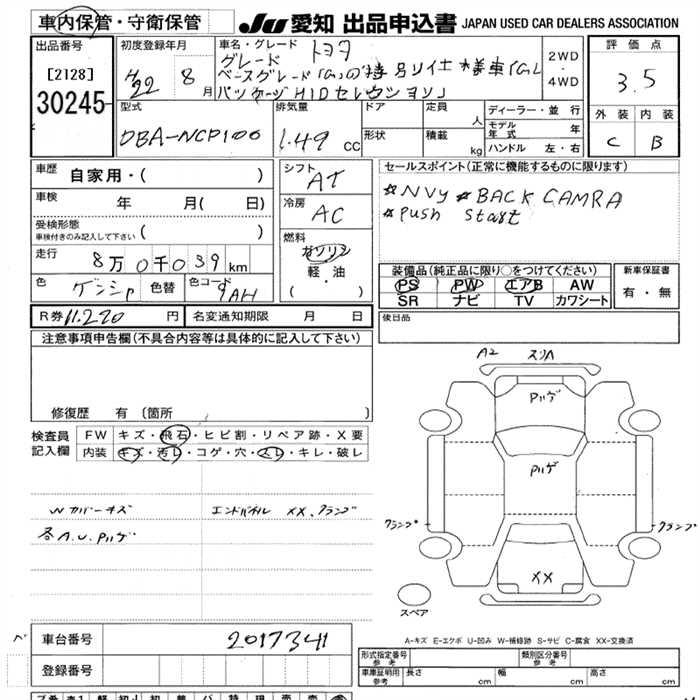 車内保管・守衛保管 JU 愛知 出品申込書 JAPAN USED CAR DEALERS ASSOCIATION
出品番号
[2128]
30245
初度登録年月
H22 8月
車名・グレード トヨタ
グレード
2WD
・
4WD
パッケージHIDセレクション)
評価点
3.5
外装 内装
C B
型式
DBA-NCP100
排気量
1.49 cc
ドア
形状
定員
人
積載
kg
ディーラー・並行
モデル年式 年
ハンドル 左・右
車歴
自家用・( )
車検 年 月( 日)
受検形態
車検付きのみ記入して下さい ( )
走行 8万0千039km
色 ゲンシャ 色替 色コード 9AH
シフト
AT
冷房
AC
燃料
ガソリン
軽・油
( )
セールスポイント(正常に機能するものに限ります)
☆NVy ☆BACK CAMRA
☆PUSH Start
装備品(純正品に限り○をつけてください)
PS PW エアB AW
SR ナビ TV カワシート
新車保証書
有・無
R券 11.220 円 名変通知期限 月 日
後日品
注意事項申告欄(不具合内容等は具体的に記入して下さい)
修復歴 有(箇所 )
検査員記入欄
FW キズ・飛石・ヒビ割・リペア跡・X要
内装 キズ・汚レ・コゲ・穴・スレ・キレ・破レ
Wカバーキズ エンドパネル XX、クランプ
各A.U.Pハゲ
A2 スリA
Pハゲ
Pハゲ
クランプ
クランプ
XX
スペア
A-キズ E-エクボ U-凹み W-補修跡 S-サビ C-腐食 XX-交換済
車台番号 2017341
登録番号
形式指定番号 参考
類別区分番号 参考
車庫証明用 参考 長さ cm 幅 cm 高さ cm